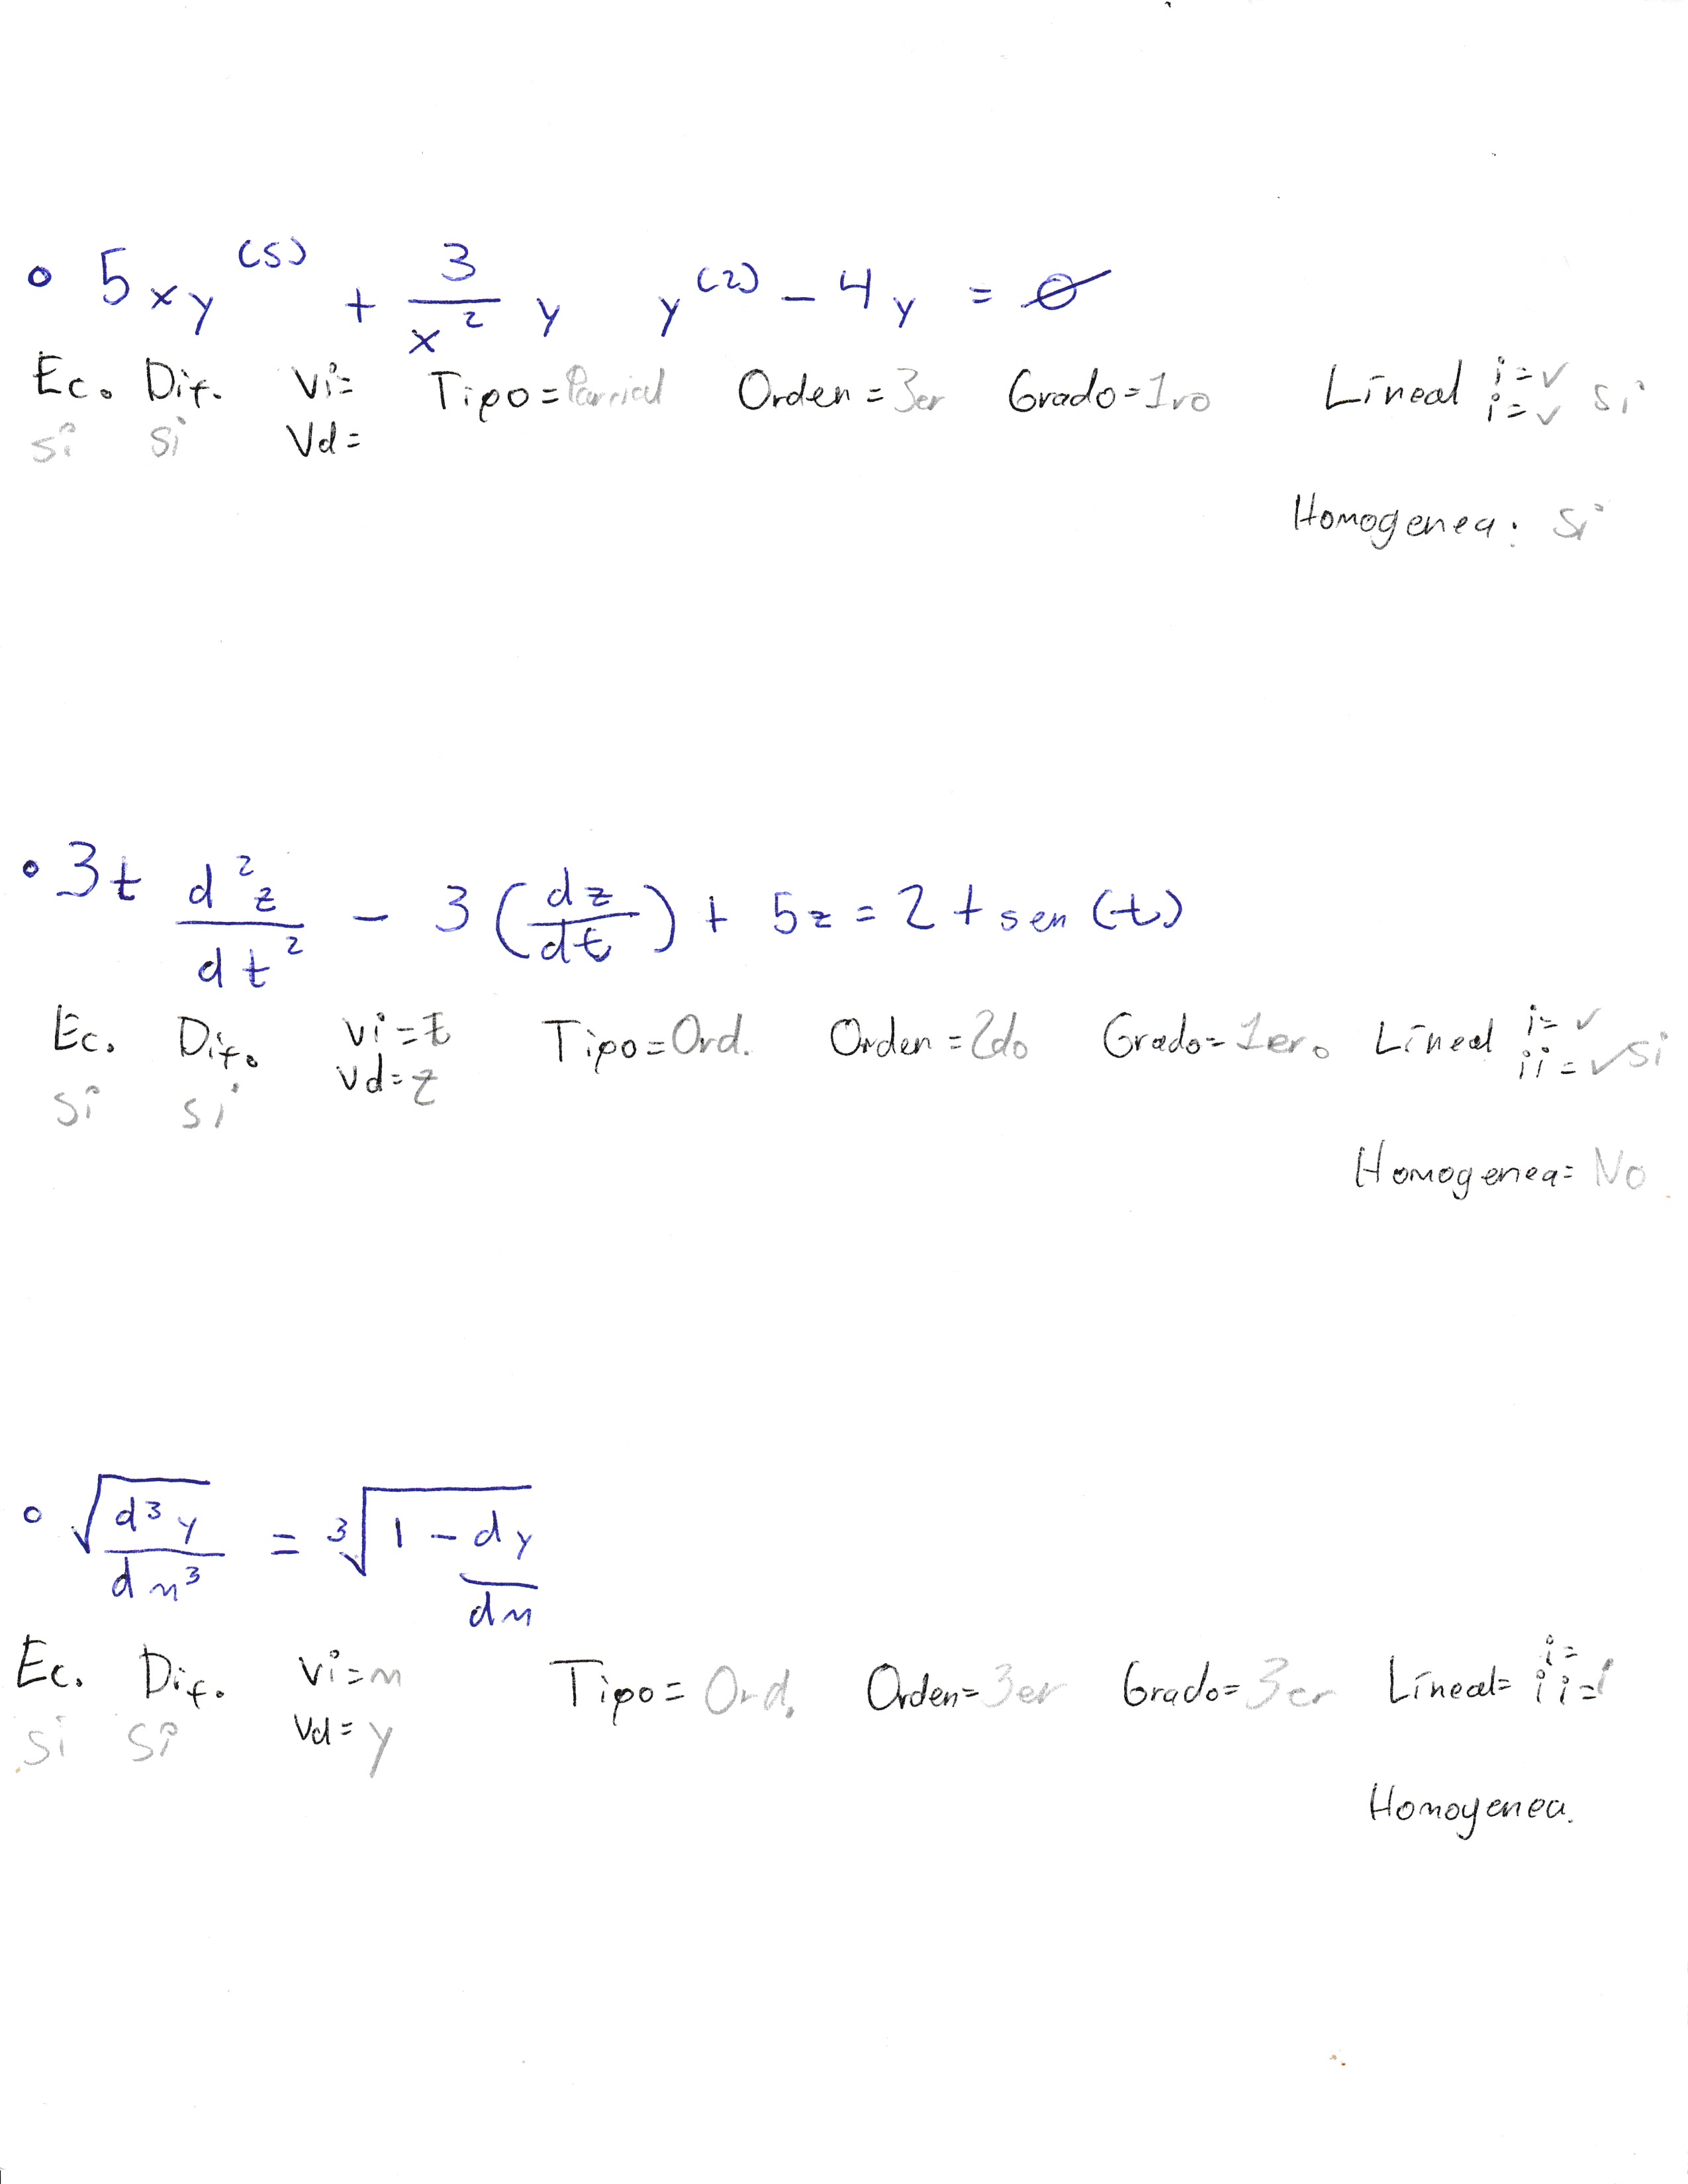 ∘ 5xy^(5) + 3/x² y y^(2) - 4y = ∅
Ec. Dif. Vi= Tipo=Parcial Orden=3er Grado=1ro Lineal i=✓ si
si si Vd= i=✓
Homogenea: Si
∘ 3t d²z/dt² - 3(dz/dt) + 5z = 2 t sen(t)
Ec. Dif. Vi=t Tipo=Ord. Orden=2do Grado=1ero Lineal i=✓
si si Vd=z ii=✓ si
Homogenea= No
∘ √(d³y/dn³) = ³√(1 - dy/dn)
Ec. Dif. Vi=n Tipo=Ord. Orden=3er Grado=3er Lineal= i=
si si Vd=y ii=
Homogenea.